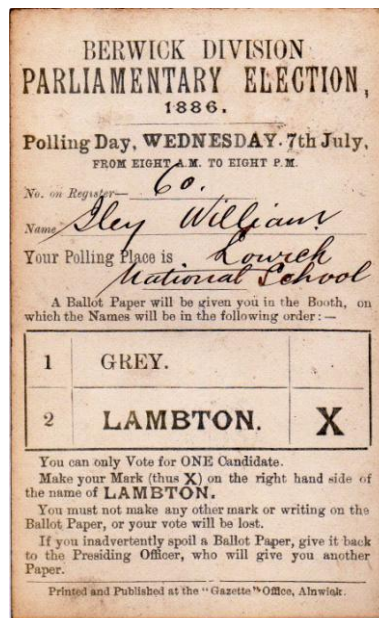 BERWICK DIVISION
PARLIAMENTARY ELECTION,
1886.
Polling Day, WEDNESDAY. 7th July,
FROM EIGHT A.M. TO EIGHT P.M.
No. on Register— 60.
Name Iley William
Your Polling Place is Lowick
National School
A Ballot Paper will be given you in the Booth, on
which the Names will be in the following order:—
1 GREY.
2 LAMBTON. X
You can only Vote for ONE Candidate.
Make your Mark (thus X) on the right hand side of
the name of LAMBTON.
You must not make any other mark or writing on the
Ballot Paper, or your vote will be lost.
If you inadvertently spoil a Ballot Paper, give it back
to the Presiding Officer, who will give you another
Paper.
Printed and Published at the "Gazette" Office, Alnwick.